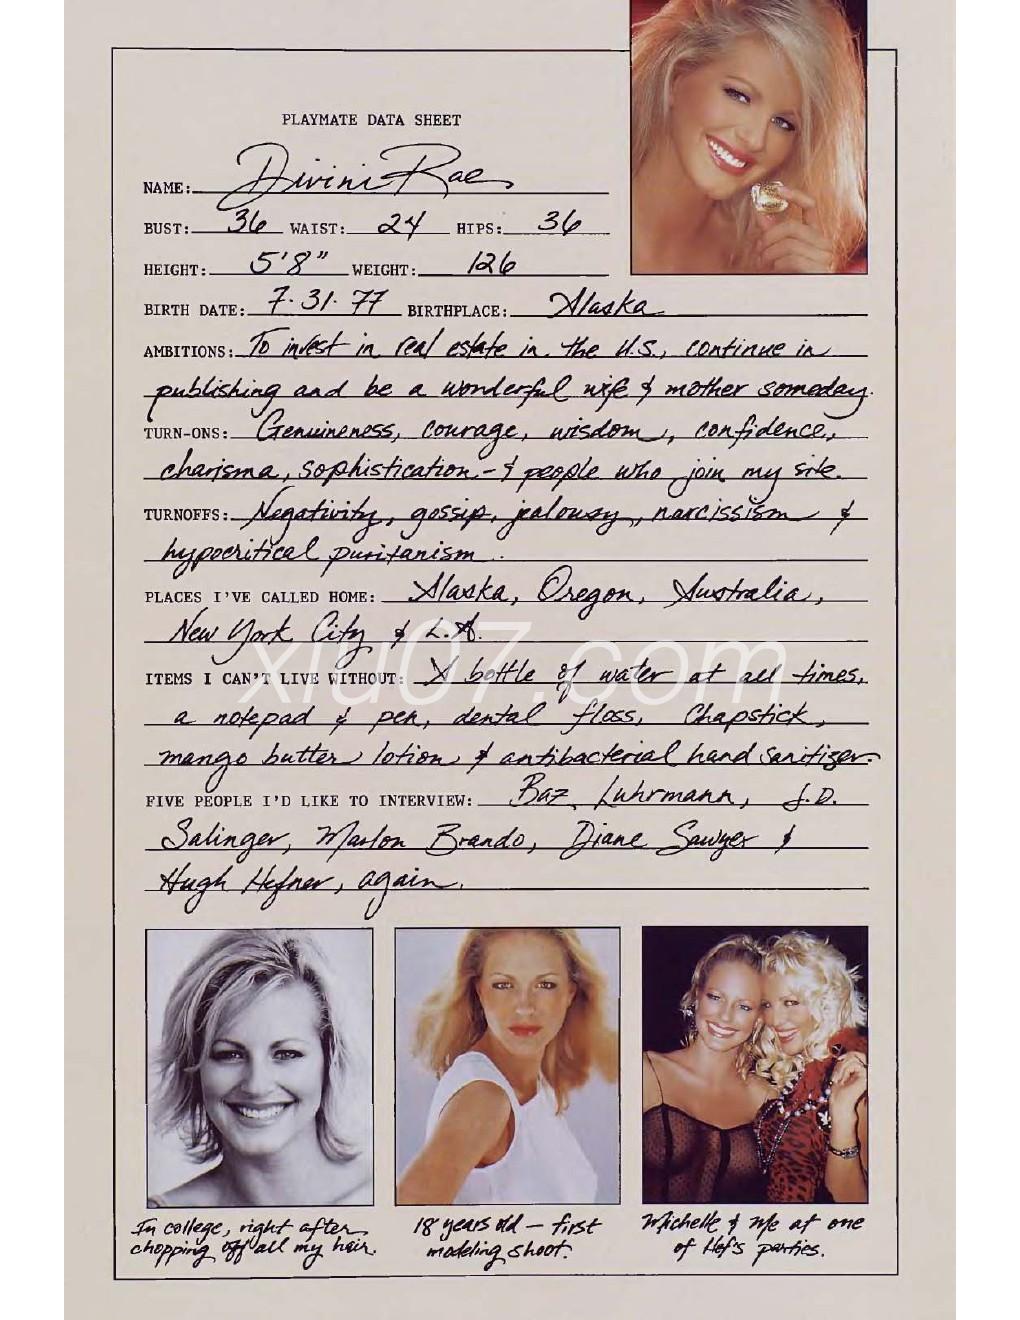 PLAYMATE DATA SHEET
NAME: Divini Rae
BUST: 36 WAIST: 24 HIPS: 36
HEIGHT: 5'8" WEIGHT: 126
BIRTH DATE: 7·31·77 BIRTHPLACE: Alaska
AMBITIONS: To invest in real estate in the U.S., continue in
publishing and be a wonderful wife & mother someday.
TURN-ONS: Genuineness, courage, wisdom, confidence,
charisma, sophistication - & people who join my site.
TURNOFFS: Negativity, gossip, jealousy, narcissism &
hypocritical puritanism.
PLACES I'VE CALLED HOME: Alaska, Oregon, Australia,
New York City & L.A.
xiu07.com
ITEMS I CAN'T LIVE WITHOUT: A bottle of water at all times,
a notepad & pen, dental floss, Chapstick,
mango butter lotion & antibacterial hand sanitizer.
FIVE PEOPLE I'D LIKE TO INTERVIEW: Baz Luhrmann, J.D.
Salinger, Marlon Brando, Diane Sawyer &
Hugh Hefner, again.
In college, right after
chopping off all my hair.
18 years old – first
modeling shoot.
Michelle & me at one
of Hef's parties.